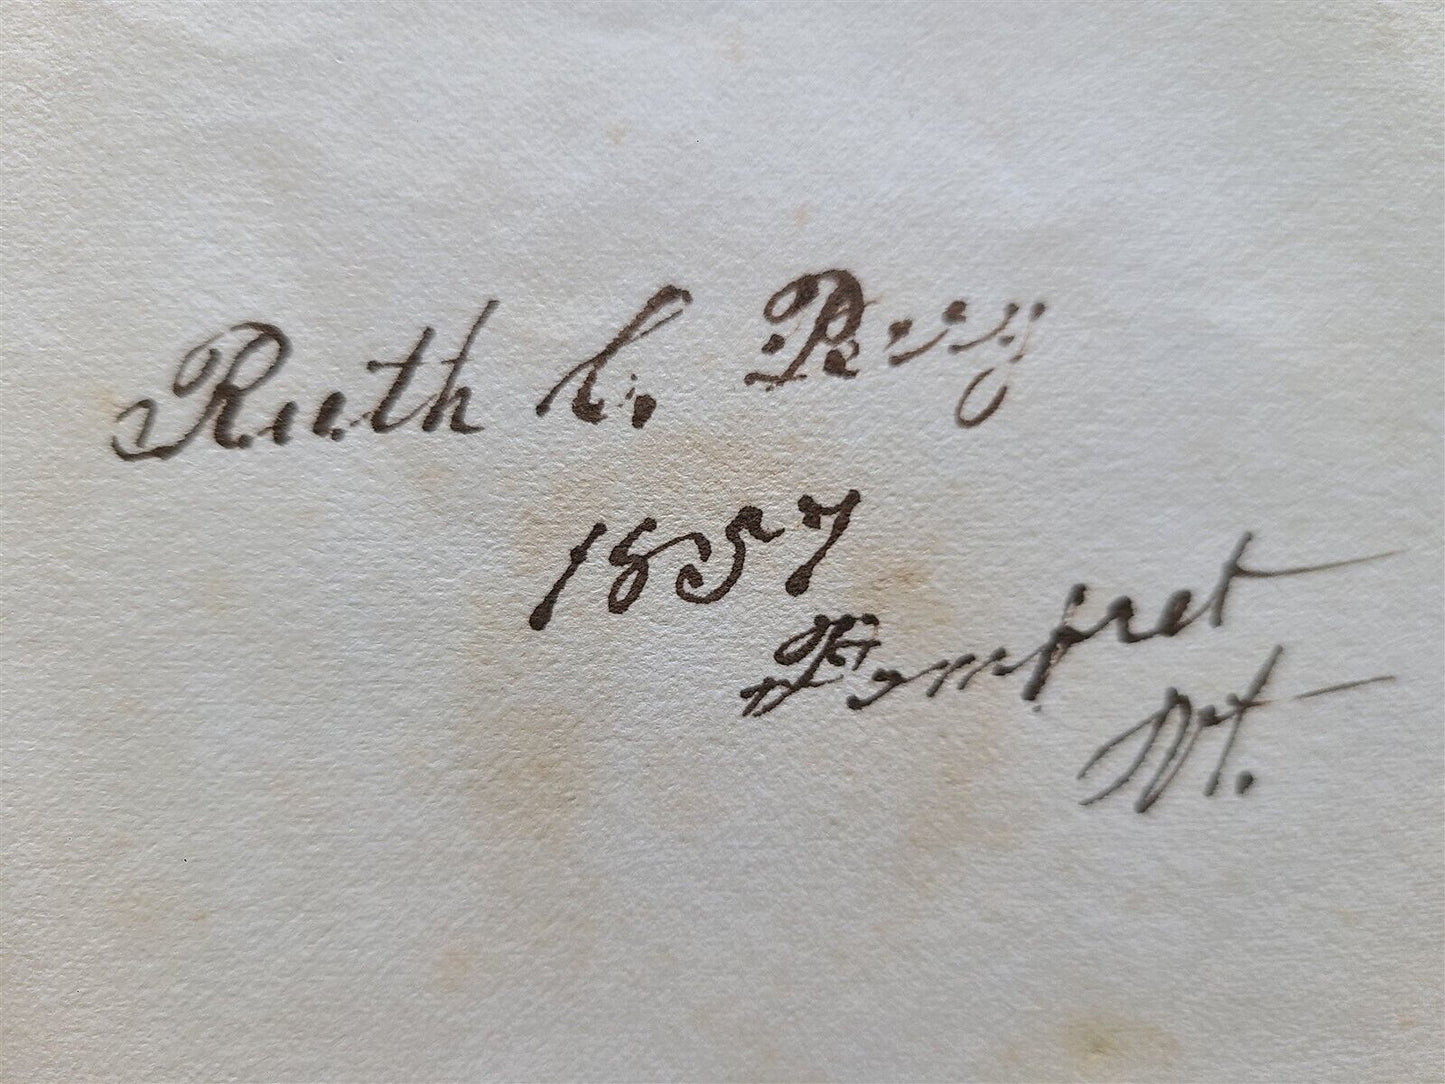 Ruth C. Perry
1857
Pomfret
Vt.